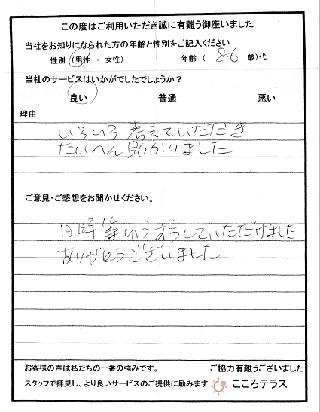 この度はご利用いただき誠に有難う御座いました
当社をお知りになられた方の年齢と性別をご記入ください
性別 (男性 ・ 女性) 年齢 ( 86 歳)代
当社のサービスはいかがでしたでしょうか?
良い 普通 悪い
理由
いろいろ考えていただき
たいへん助かりました
ご意見・ご感想をお聞かせください。
日時等ゆうずうしていただけました
ありがとうございました
お客様の声は私たちの一番の強みです。 ご協力有難うございました
スタッフで拝見し、より良いサービスのご提供に励みます こころテラス